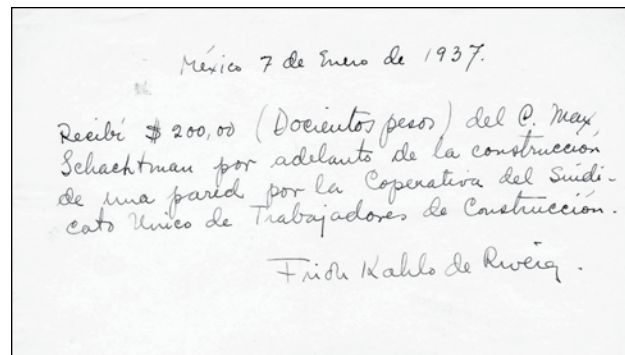 México 7 de Enero de 1937.
Recibí $ 200,00 (Docientos pesos) del C. Max
Schachtman por adelanto de la construcción
de una pared por la Coperativa del Sindi-
cato Unico de Trabajadores de Construcción.
Frida Kahlo de Rivera.